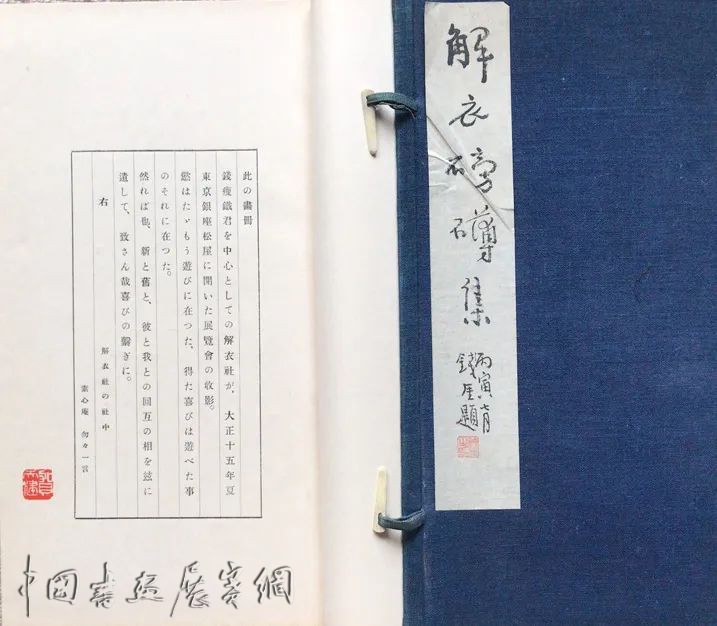 解衣磅礴集
丙寅
錢厓題
此の畫冊
錢瘦鐵君を中心としての解衣社が、大正十五年夏
東京銀座松屋に開いた展覽會の收影。
慾はたゞもう遊びに在つた、得た喜びは遊べた事
のそれに在つた。
然れば也、新と舊と、彼と我との回互の相を玆に
遺して、致さん哉喜びの繫ぎに。
右
解衣社の社中
素心庵 匆々一言
中國書畫展賽網